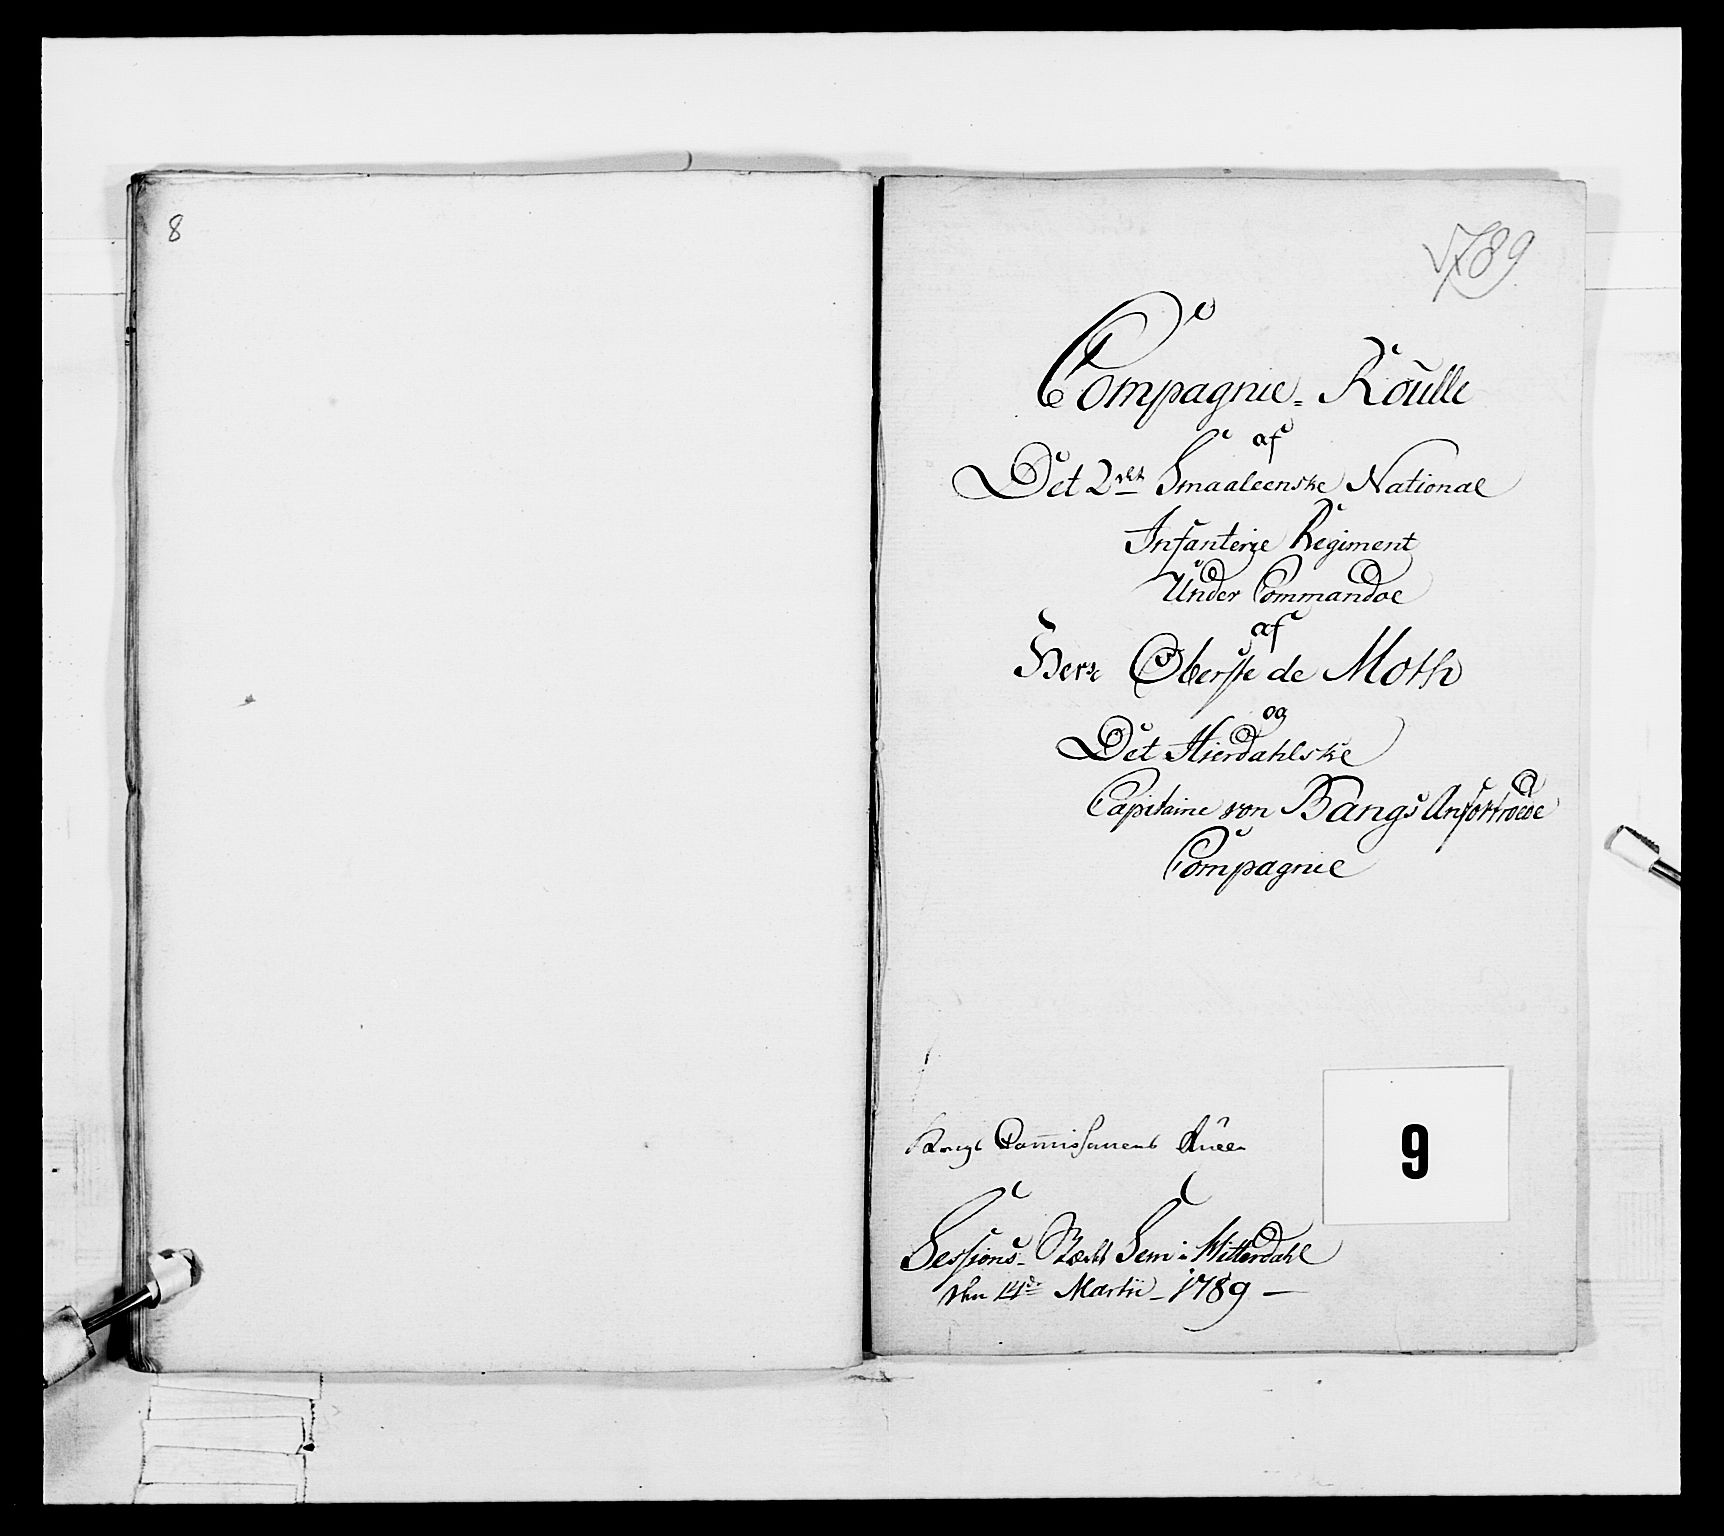 8
1789
Compagnie = Roulle
af
Det 2det Smaaleenske National
Infanterie Regiment
Under Commandoe
af
Herr Oberste de Moth
og
Det Hierdahlske
Capitaine von Bangs Anfortroede
Compagnie
9
Sessions- Sem i Hitterdahl
den 14de Martii - 1789 -